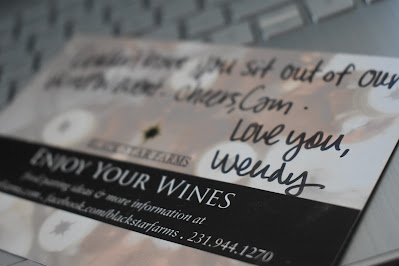 you sit out of our
cheers, Com.
Love you,
Wendy
BLACK STAR FARMS
ENJOY YOUR WINES
Find pairing ideas & more information at
. facebook.com/blackstarfarms . 231.944.1270